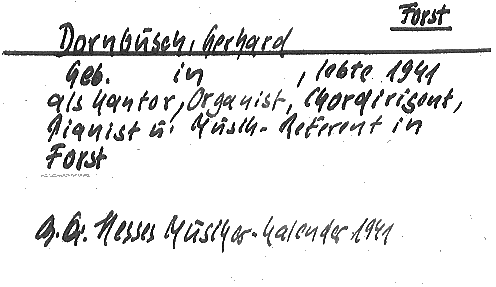 Forst
Dornbusch, Gerhard
Geb. in , lebte 1941
als Kantor, Organist, Chordirigent,
Pianist u. Musik-Referent in
Forst
Hesses Musiker-Kalender 1941